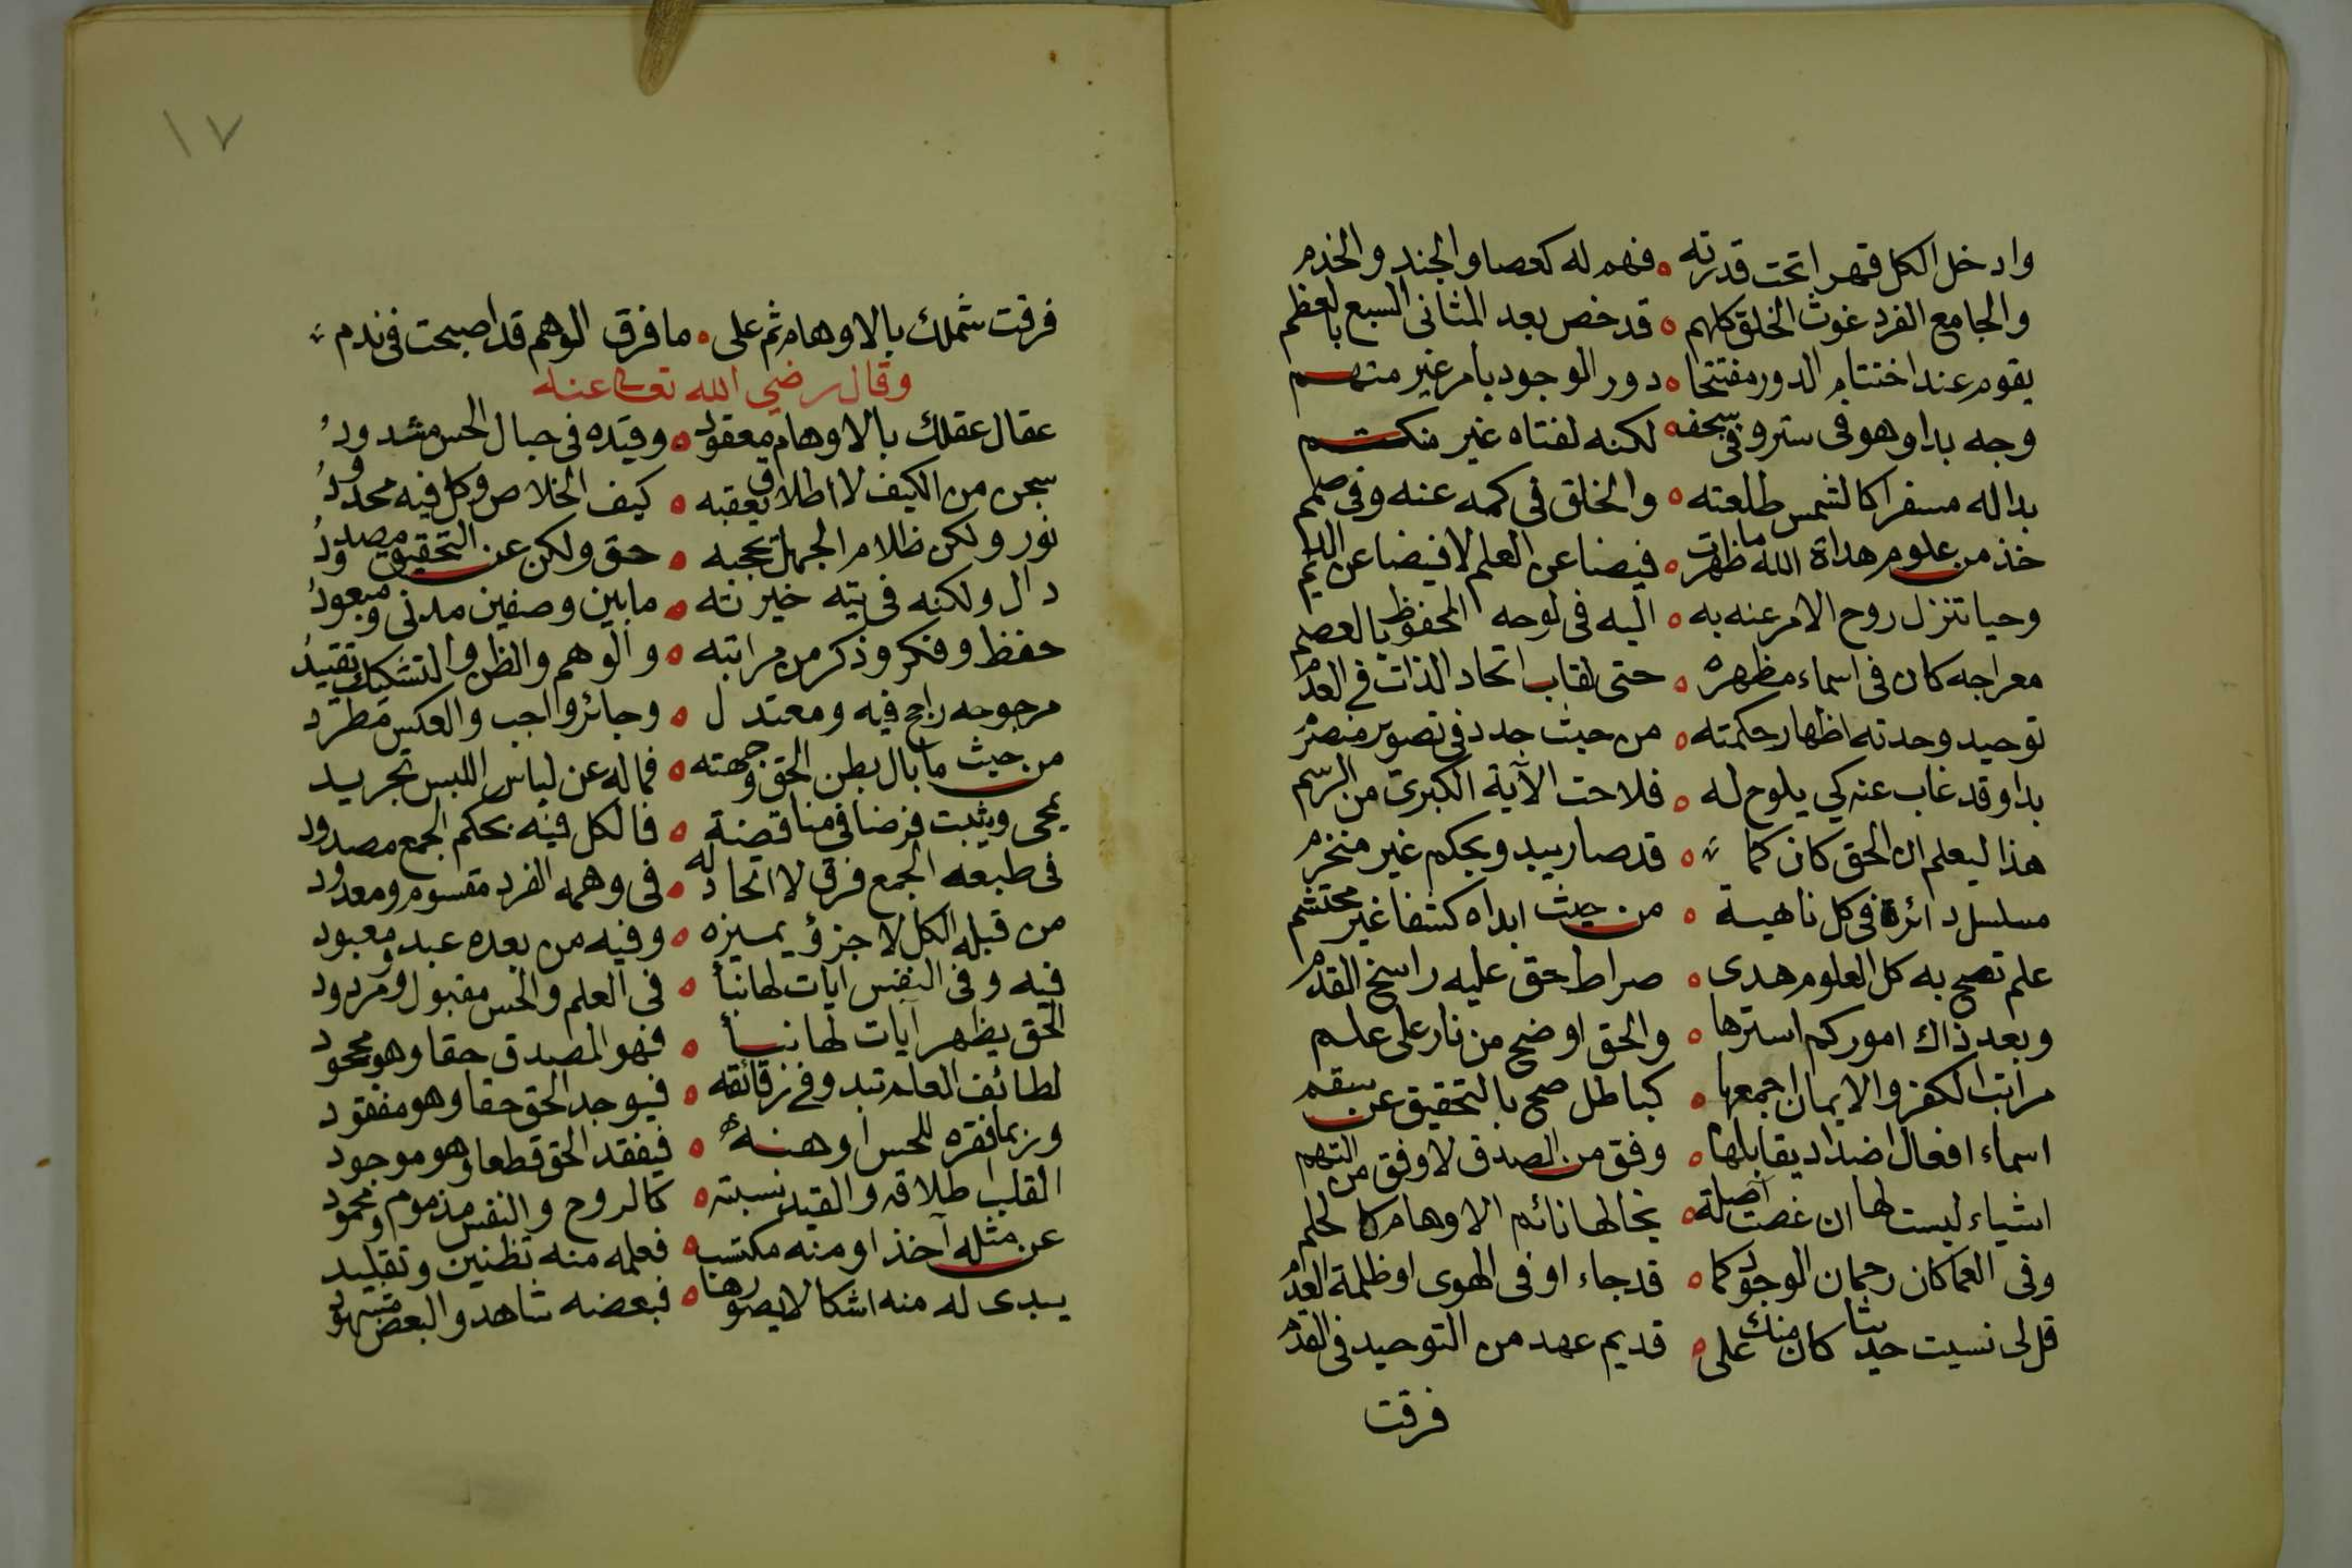 وادخل الكل قهرا تحت قدرته ه فهم له كعصا والجند والخدم
والجامع الفرد غوث الخلق كلهم ه قد خص بعد المثانى السبع بالعظم
يقوم عند اختتام الدور مفتتحا ه دور الوجود بامر غير متهم
وجه بدا وهو فى ستر وفى سجفه لكنه لفتاه غير منكتم
بدا له مسفرا كالشمس طلعته ه والخلق فى كمه عنه وفى صمم
خذ من علوم هداة الله ما ظهرت ه فيضا عن العلم لا فيضا عن الديم
وحيا تنزل روح الامر عنه به ه اليه فى لوحه المحفوظ بالعصم
معراجه كان فى اسماء مظهره ه حتى لقاب اتحاد الذات فى العدم
توحيد وحدته اظهار حكمته ه من حيث جدد فى تصوير منصرم
بدا وقد غاب عنه كي يلوح له ه فلاحت الآية الكبرى من الرسم
هذا ليعلم ان الحق كان كما ه قد صار يبد ويحكم غير منخرم
مسلسل دائرة فى كل ناهية ه من حيث ابداه كشفا غير محتشم
علم تصح به كل العلوم هدى ه صراط حق عليه راسخ القدم
وبعد ذاك اموركم استرها ه والحق اوضح من نار على علم
مراتب الكفر والايمان اجمعها ه كباطل صح بالتحقيق عن سقم
اسماء افعال اضداد يقابلها ه وفق من الصدق لا وفق من التهم
اشياء ليست لها ان غصت اصلة ه يخالها نائم الاوهام كالحلم
وفى العما كان رحمان الوجود كما ه قد جاء او فى الهوى او ظلمة العدم
قل لى نسيت حديثا كان منك على ه قديم عهد من التوحيد فى القدم
فرقت
١٧
فرقت شملك بالاوهام ثم على ه ما فرق الوهم قد اصبحت فى ندم
وقال رضي الله تعالى عنه
عقال عقلك بالاوهام معقود ه وقيده فى حبال الحس مشدود
سجن من الكيف لا اطلاق يعقبه ه كيف الخلاص وكل فيه محدود
نور ولكن ظلام الجهل يحجبه ه حق ولكن عن التحقيق مصدود
دال ولكنه فى تيه خيرته ه ما بين وصفين مدنى ومبعود
حفظ وفكر وذكر من مراتبه ه والوهم والظن والتشكيك تقييد
مرجوحه راجح فيه ومعتدل ه وجائز واجب والعكس مطرد
من حيث ما بال بطن الحق وجهته ه فما له عن لباس اللبس تجريد
يمحى ويثبت فرضا فى مناقضة ه فالكل فيه بحكم الجمع مصدود
فى طبعه الجمع فرق لا اتحاد له ه فى وهمه الفرد مقسوم ومعدود
من قبله الكل لا جزؤ يميزه ه وفيه من بعده عبد ومعبود
فيه وفى النفس ايات لها نبأ ه فى العلم والحس مقبول ومردود
الحق يظهر آيات لها نبأ ه فهو المصدق حقا وهو مجحود
لطائف العلم تبدو فى زقائقه ه فيوجد الحق حقا وهو مفقود
وربما فقره للحس اوهنه ه فيفقد الحق قطعا وهو موجود
القلب اطلاقه والقيد نسبته ه كالروح والنفس مذموم ومحمود
عن مثله آخذ او منه مكتسب ه فعلمه منه تظنين وتقليد
يبدى له منه اشكالا يصورها ه فبعضه شاهد والبعض مشهود